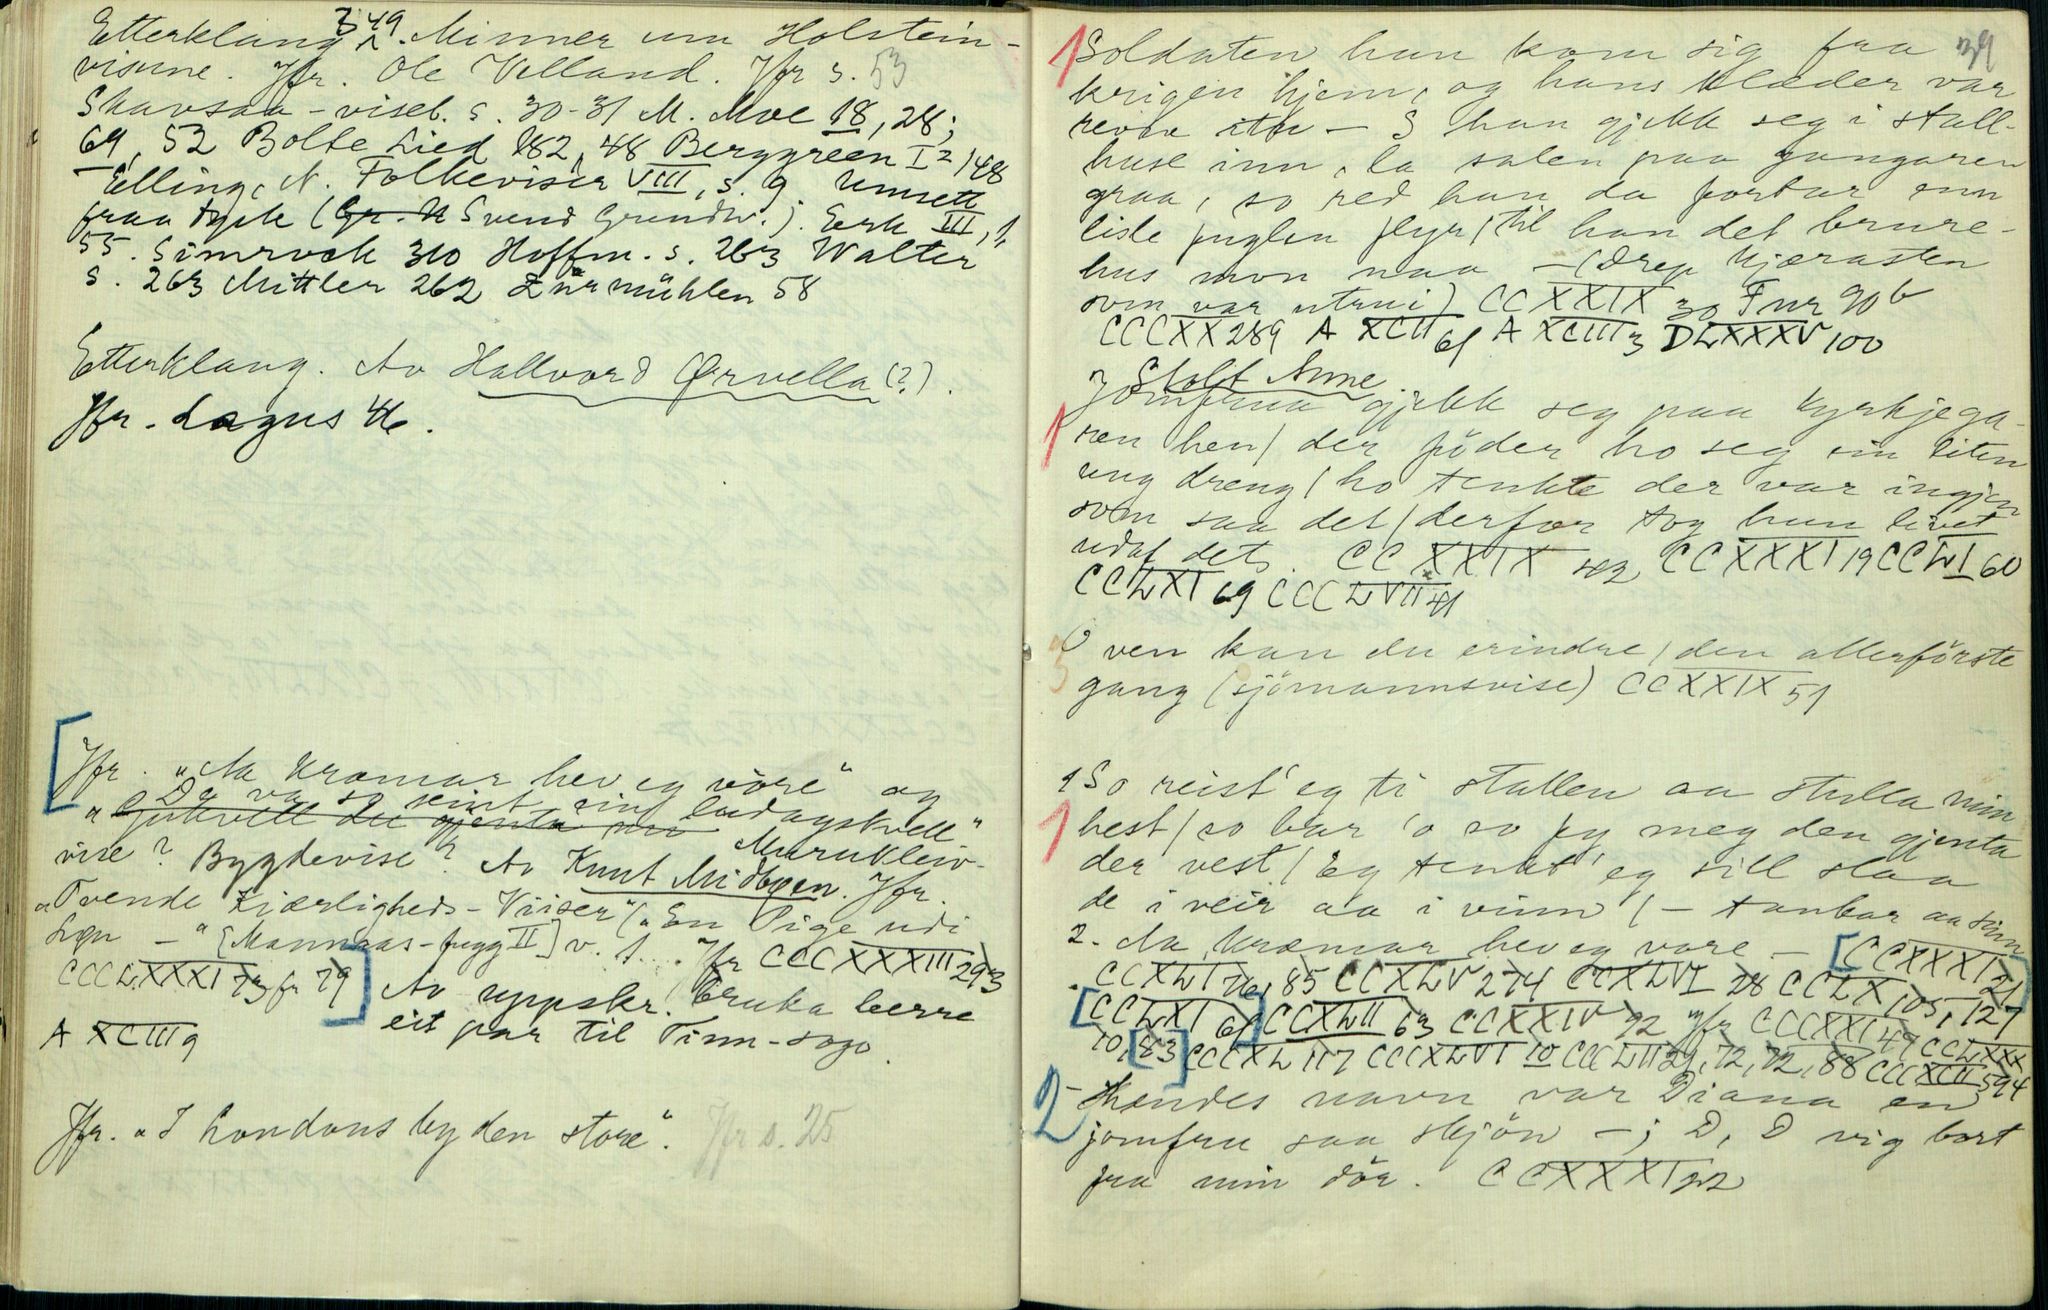 349
Etterklang. Minner um Holstein-
visune. Jfr. Ole Velland. Jfr s. 53
Skavsaa-viseb. s. 30-31 M. Moe 18, 28;
69, 52 Bolte Lied 182, 48 Berggreen I² 148
Elling, N. Folkeviser VIII, s. 9 Umsett
fraa tysk (Gr. N Svend Grundtv.). Erk III, 1,
55. Simrock 310 Hoffm. s. 263 Walter
s. 263 Mittler 262 Zurmühlen 58
Etterklang. Av Hallvord Ørvella (?).
Jfr. Lagus 46.
Jfr. "Aa kramar hev eg vore" og
Da va so seint ein laudagskvell"
" Gjekk
vise? Bygdevise? Av Knut Midbøen. Jfr.
"Tvende Kjærligheds-Viiser" ("En Pige udi
Løn — " [Mannaas-bugg II] v. 1... Jfr CCCXXXIII 293
CCCLXXXI 73 fr 79 Av uppskr. bruka berre
eit par til Tinn-soga.
A XCIII 9
Jfr. "I Londons by den store". Jfr s. 25
39
1 Soldaten han kom sig fra
krigen hjem, og hans klæder var
revne itu — S han gjekk seg i stall-
huse inn, la salen paa gangaren
graa, so red han da fortar enn
lisle fuglen flyr / til han det brure-
hus mon naa — (Drep kjærasten
som var utrui) CCXXIX 30 Fnr 90 b
CCCXX 289 A XCII 61 A XCIII 3 DLXXXV 100
Stolt Anne
Jomfrua gjekk seg paa kyrkjega-
1 ren hen / der föder ho seg ein liten
ung dreng / ho tenkte der var ingjen
som saa det / derfor tog hun livet
udaf det. CCXXIX 42 CCXXXI 19 CCLVI 60
CCLXI 69 CCCLVII 41
3 O ven kan du erindre / den allerförste
gang (sjömannsvise) CCXXIX 51
1 So reist' eg ti stallen aa stella min
1 hest / so bar 'o so fy meg den gjenta
der vest / Eg tenkt' eg sill slaa
de i veir aa i vinn / — tankar aa sinn
2. Aa kræmar hev eg vore — [CCXXXI 21]
CCXLI 76, 85 CCXLV 274 CCXLVI 28 CCLX 105, 127
[CCLXI 61] CCXLII 63 CCXXIV 92 Jfr CCCXXI 47 CCLXXX
10, [83] CCCXL 117 CCCXLVI 10 CCCLII 29, 72, 72, 88 CCCXCII 594
2 - Hendes navn var Diana en
jomfru saa skjön —; D, D vig bort
fra min dör. CCXXXI 22